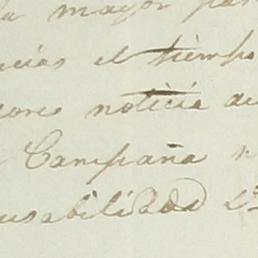 la mayor par
ncias el tiempo
dores noticia de
Campaña
usabilidad